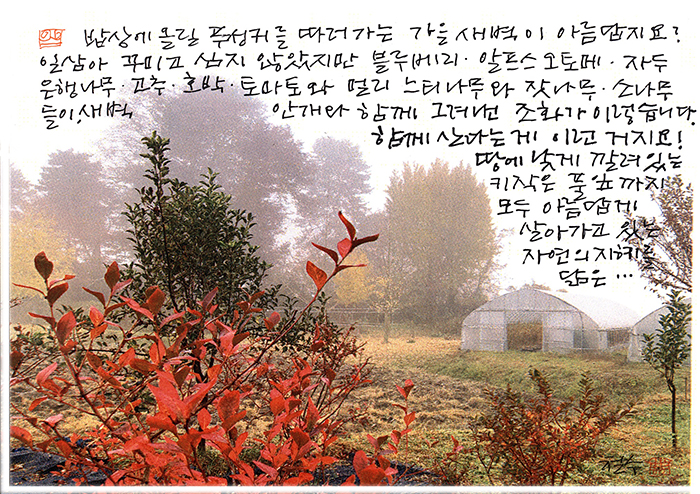 밥상에 올릴 푸성귀를 따러가는 가을 새벽이 아름답지요?
일삼아 꾸미고 심지 않았지만 블루베리·알프스오토메·자두
은행나무·고추·호박·토마토와 멀리 느티나무와 잣나무·소나무
들이, 새벽 안개와 함께 그려낸 조화가 이렇습니다.
함께 산다는게 이런 거지요!
땅에 낮게 깔려있는
키작은 풀잎까지
모두 아름답게
살아가고 있는
자연의 지혜를
닮은...